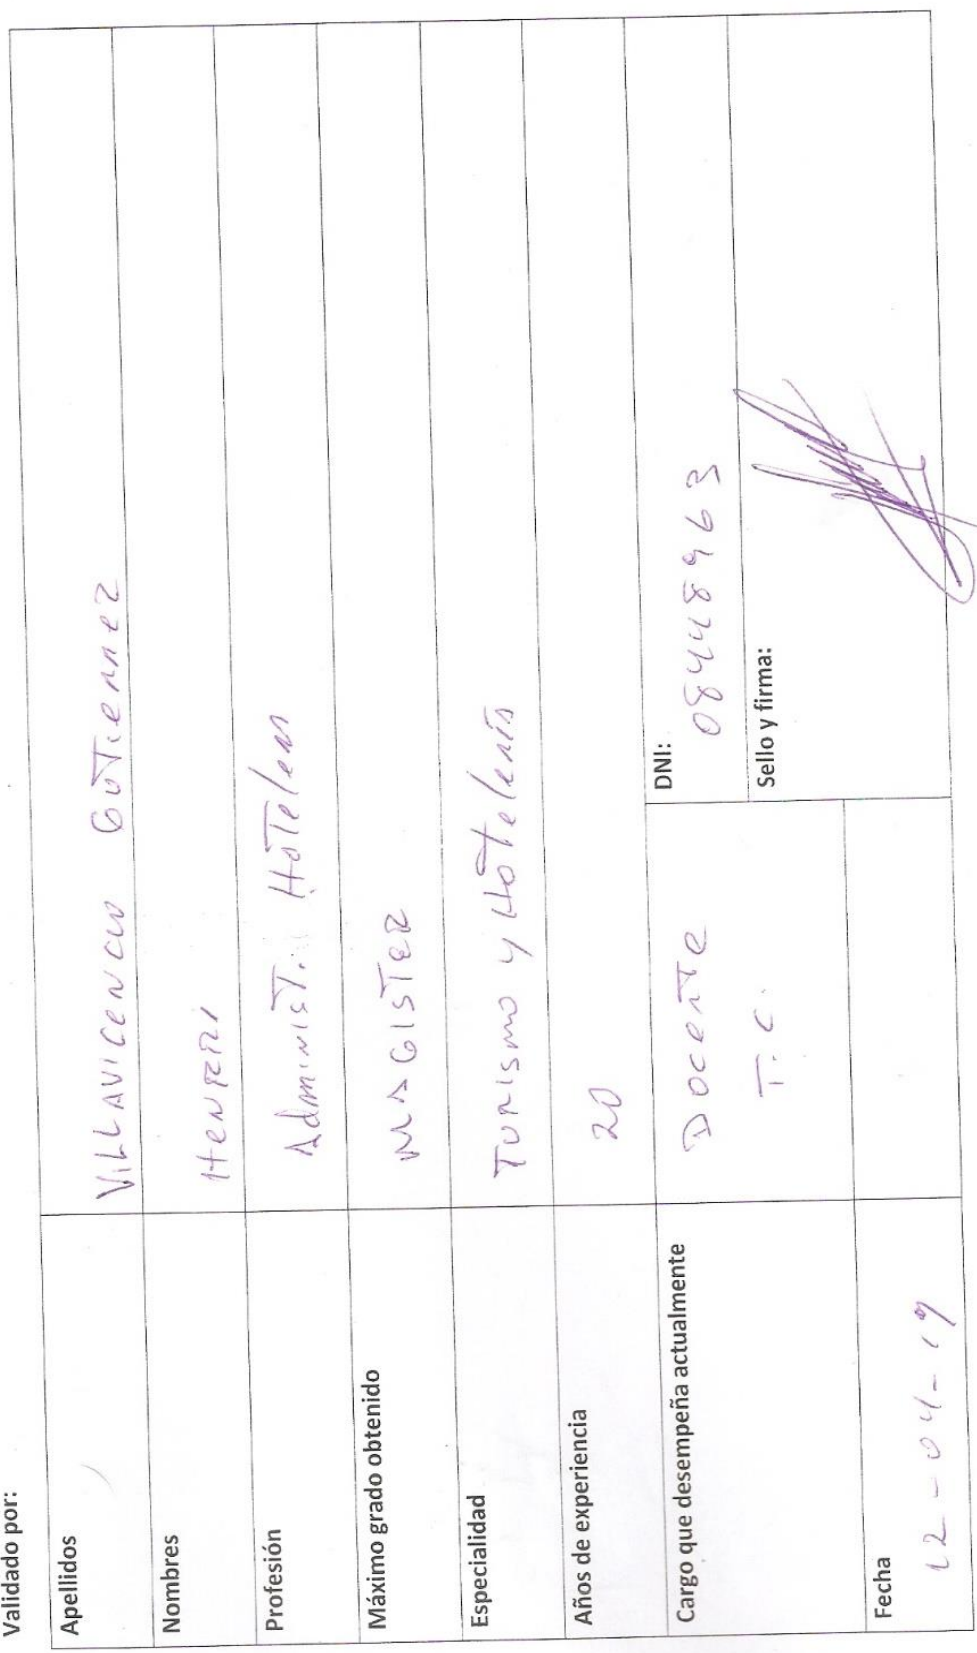 Validado por:
Apellidos VILLAVICENCIO GUTIERREZ
Nombres HENRRI
Profesión Administ. Hotelera
Máximo grado obtenido MAGISTER
Especialidad Turismo y Hotelería
Años de experiencia 20
Cargo que desempeña actualmente Docente
T.C.
DNI: 08448963
Sello y firma:
Fecha
12-04-19